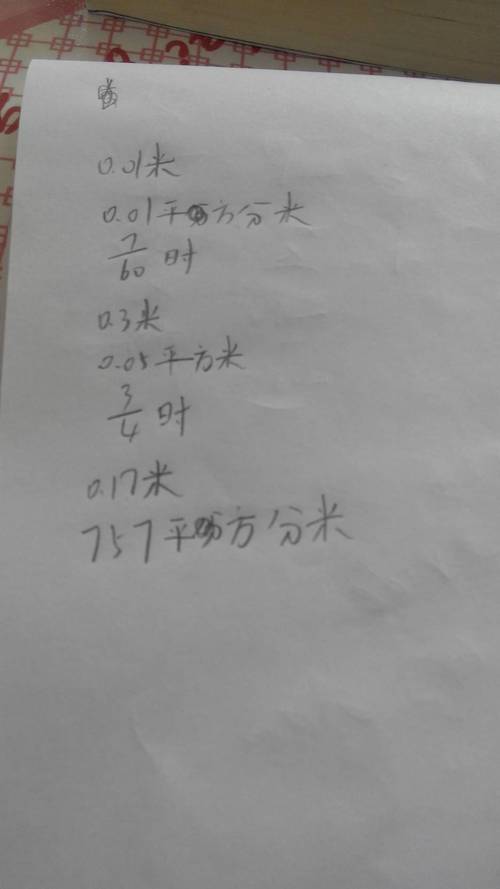 0.01米
0.01平方分米
7/60 时
0.3米
0.05平方米
3/4 时
0.17米
757平方分米